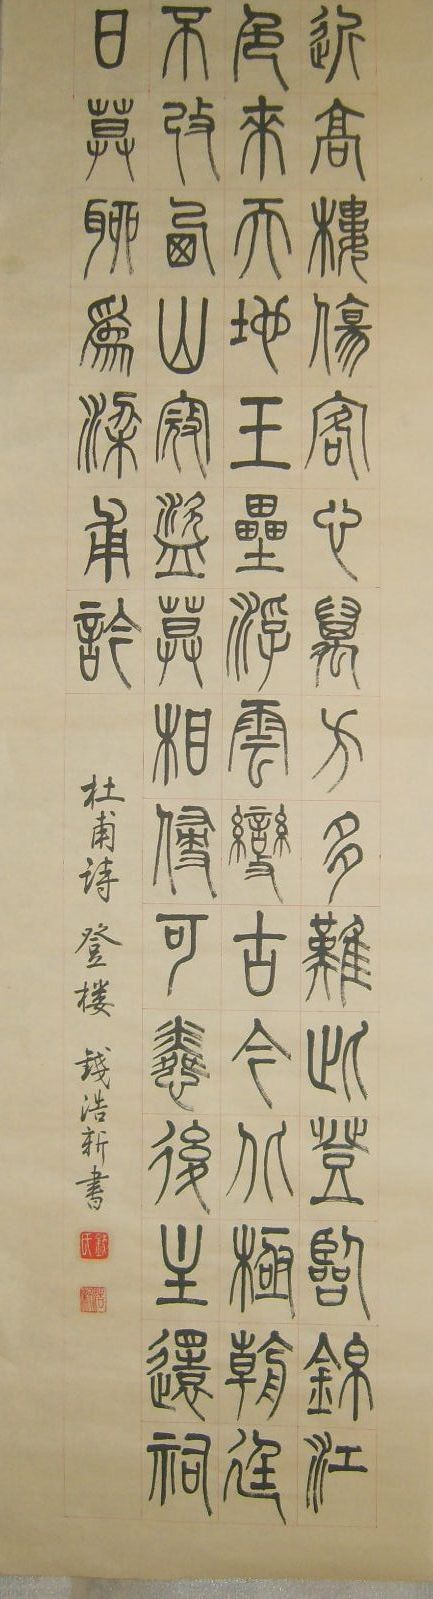 近高樓傷客心萬方多難此登臨錦江
色來天地玉壘浮雲變古今北極朝廷
不改西山寇盜莫相侵可憐後主還祠
日莫聊爲梁甫訡
杜甫詩 登楼 錢浩新書